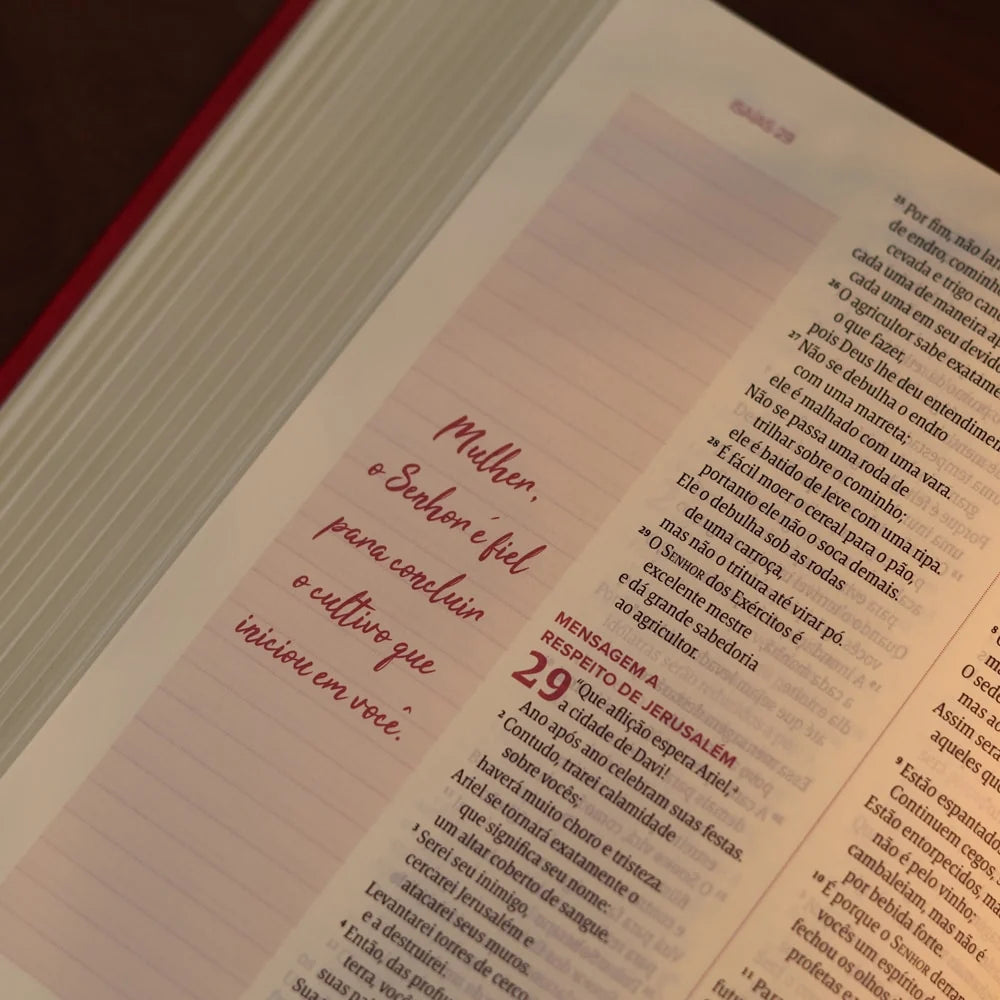 ISAÍAS 29
Mulher,
o Senhor é fiel
para concluir
o cultivo que
iniciou em você.
25 Por fim, não
de endro, cominho
cevada e trigo
cada uma de maneira
cada uma em seu devido
26 O agricultor sabe
o que fazer,
pois Deus lhe deu
27 Não se debulha o endro
com uma marreta;
ele é malhado com uma vara.
Não se passa uma roda de
trilhar sobre o cominho;
ele é batido de leve com uma ripa.
28 É fácil moer o cereal para o pão,
portanto ele não o soca demais.
Ele o debulha sob as rodas
de uma carroça,
mas não o tritura até virar pó.
29 O SENHOR dos Exércitos é
excelente mestre
e dá grande sabedoria
ao agricultor.
MENSAGEM A
RESPEITO DE JERUSALÉM
29 “Que aflição espera Ariel,
a cidade de Davi!
Ano após ano celebram suas festas.
2 Contudo, trarei calamidade
sobre vocês;
haverá muito choro e tristeza.
Ariel se tornará exatamente o
que significa seu nome:
um altar coberto de sangue.
3 Serei seu inimigo,
cercarei Jerusalém e
atacarei seus muros.
Levantarei torres de cerco
e a destruirei.
4 Então, das
terra,
O
mas
Assim
aqueles
9 Estão
Continuem cegos,
Estão entorpecidos,
não é pelo vinho;
cambaleiam, mas não é
por bebida forte.
10 É porque o SENHOR
vocês um espírito
fechou os olhos
profetas e
11